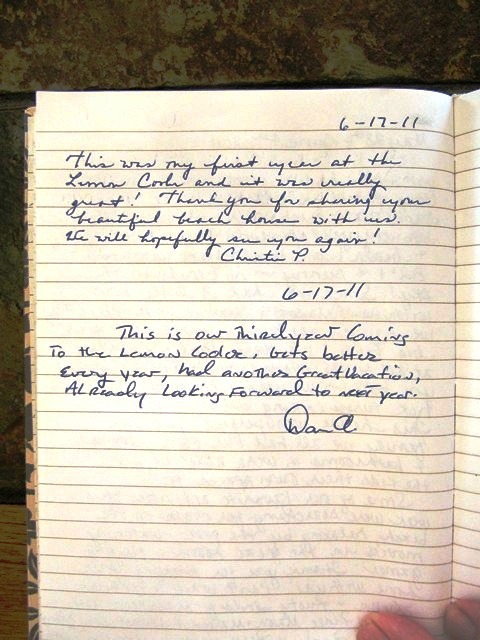 6-17-11
This was my first year at the
Lemon Cooler and it was really
great! Thank you for sharing your
beautiful beach house with us.
We will hopefully see you again!
Christie P.
6-17-11
This is our Third year Coming
To the Lemon Cooler, Gets better
Every year, had another Great Vacation,
Already Looking Forward to next year.